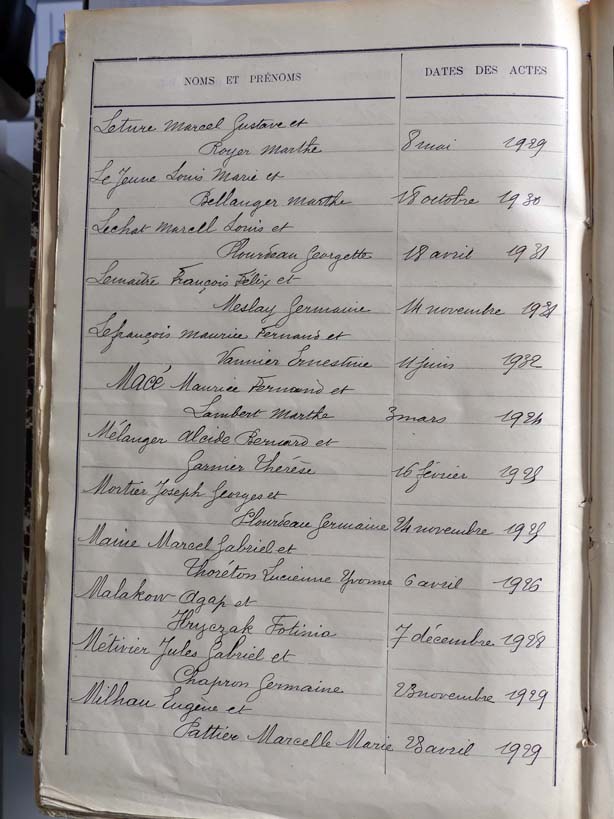 NOMS ET PRÉNOMS DATES DES ACTES
Leture Marcel Gustave et
Royer Marthe 8 mai 1929
Le Jeune Louis Marie et
Bellanger Marthe 18 octobre 1930
Lechat Marcel Louis et
Plourdeau Georgette 18 avril 1931
Lemaitre François Félix et
Meslay Germaine 14 novembre 1931
Lefrançois Maurice Fernand et
Vannier Ernestine 11 juin 1932
MACÉ Maurice Fernand et
Lambert Marthe 3 mars 1924
Mélanger Alcide Bernard et
Garnier Thérèse 16 février 1925
Mortier Joseph Georges et
Plourdeau Germaine 24 novembre 1925
Maine Marcel Gabriel et
Thoréton Lucienne Yvonne 6 avril 1926
Malakow Agap et
Hryczak Fotinia 7 décembre 1928
Métivier Jules Gabriel et
Chapron Germaine 23 novembre 1929
Milhau Eugène et
Pattier Marcelle Marie 23 avril 1929